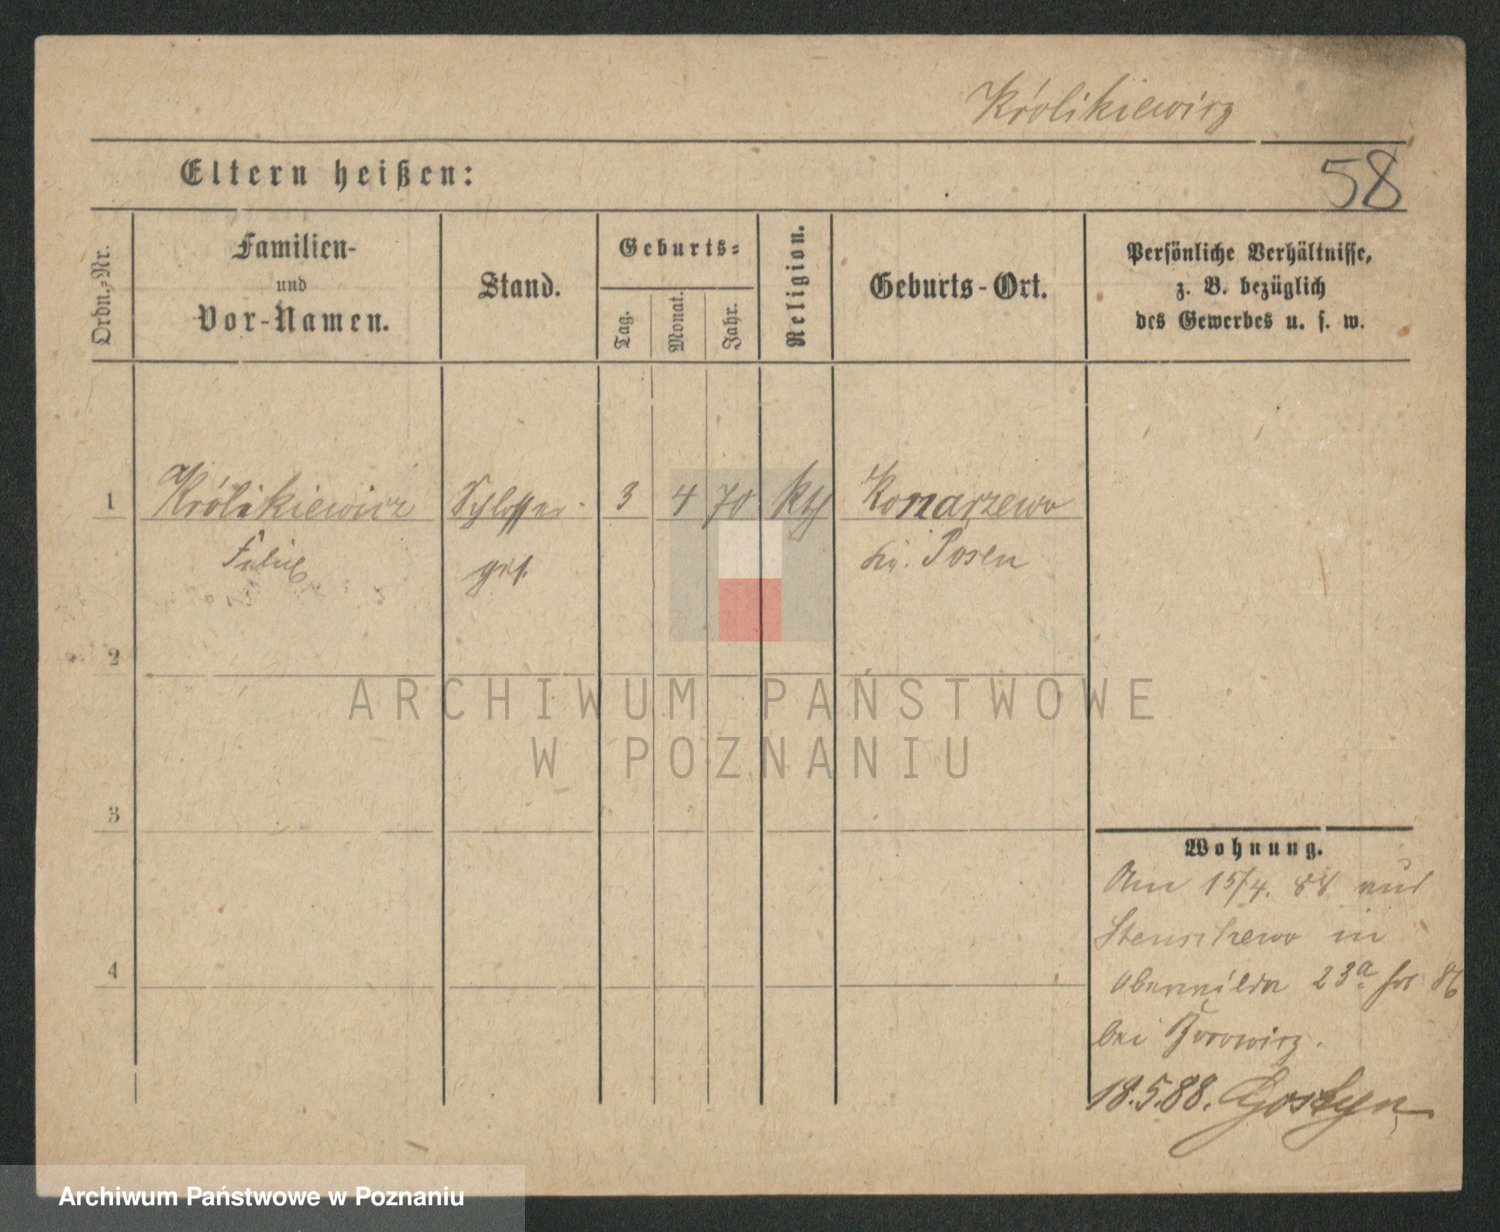 Królikiewicz
58
Eltern heißen:
Ordn.-Nr.
Familien-
und
Vor-Namen.
Stand.
Geburts-
Tag.
Monat.
Jahr.
Religion.
Geburts-Ort.
Persönliche Verhältnisse,
z. B. bezüglich
des Gewerbes u. s. w.
1 Królikiewicz Schlosser- 3 4 70 kth Konarzewo
Felix ges. Posen
2
3
4
Wohnung.
Am 15/4. 88 aus
Stenschewo in
Oberwilda 23a
bei Borowicz.
18.5.88. Gostyn
ARCHIWUM PAŃSTWOWE
W POZNANIU
Archiwum Państwowe w Poznaniu